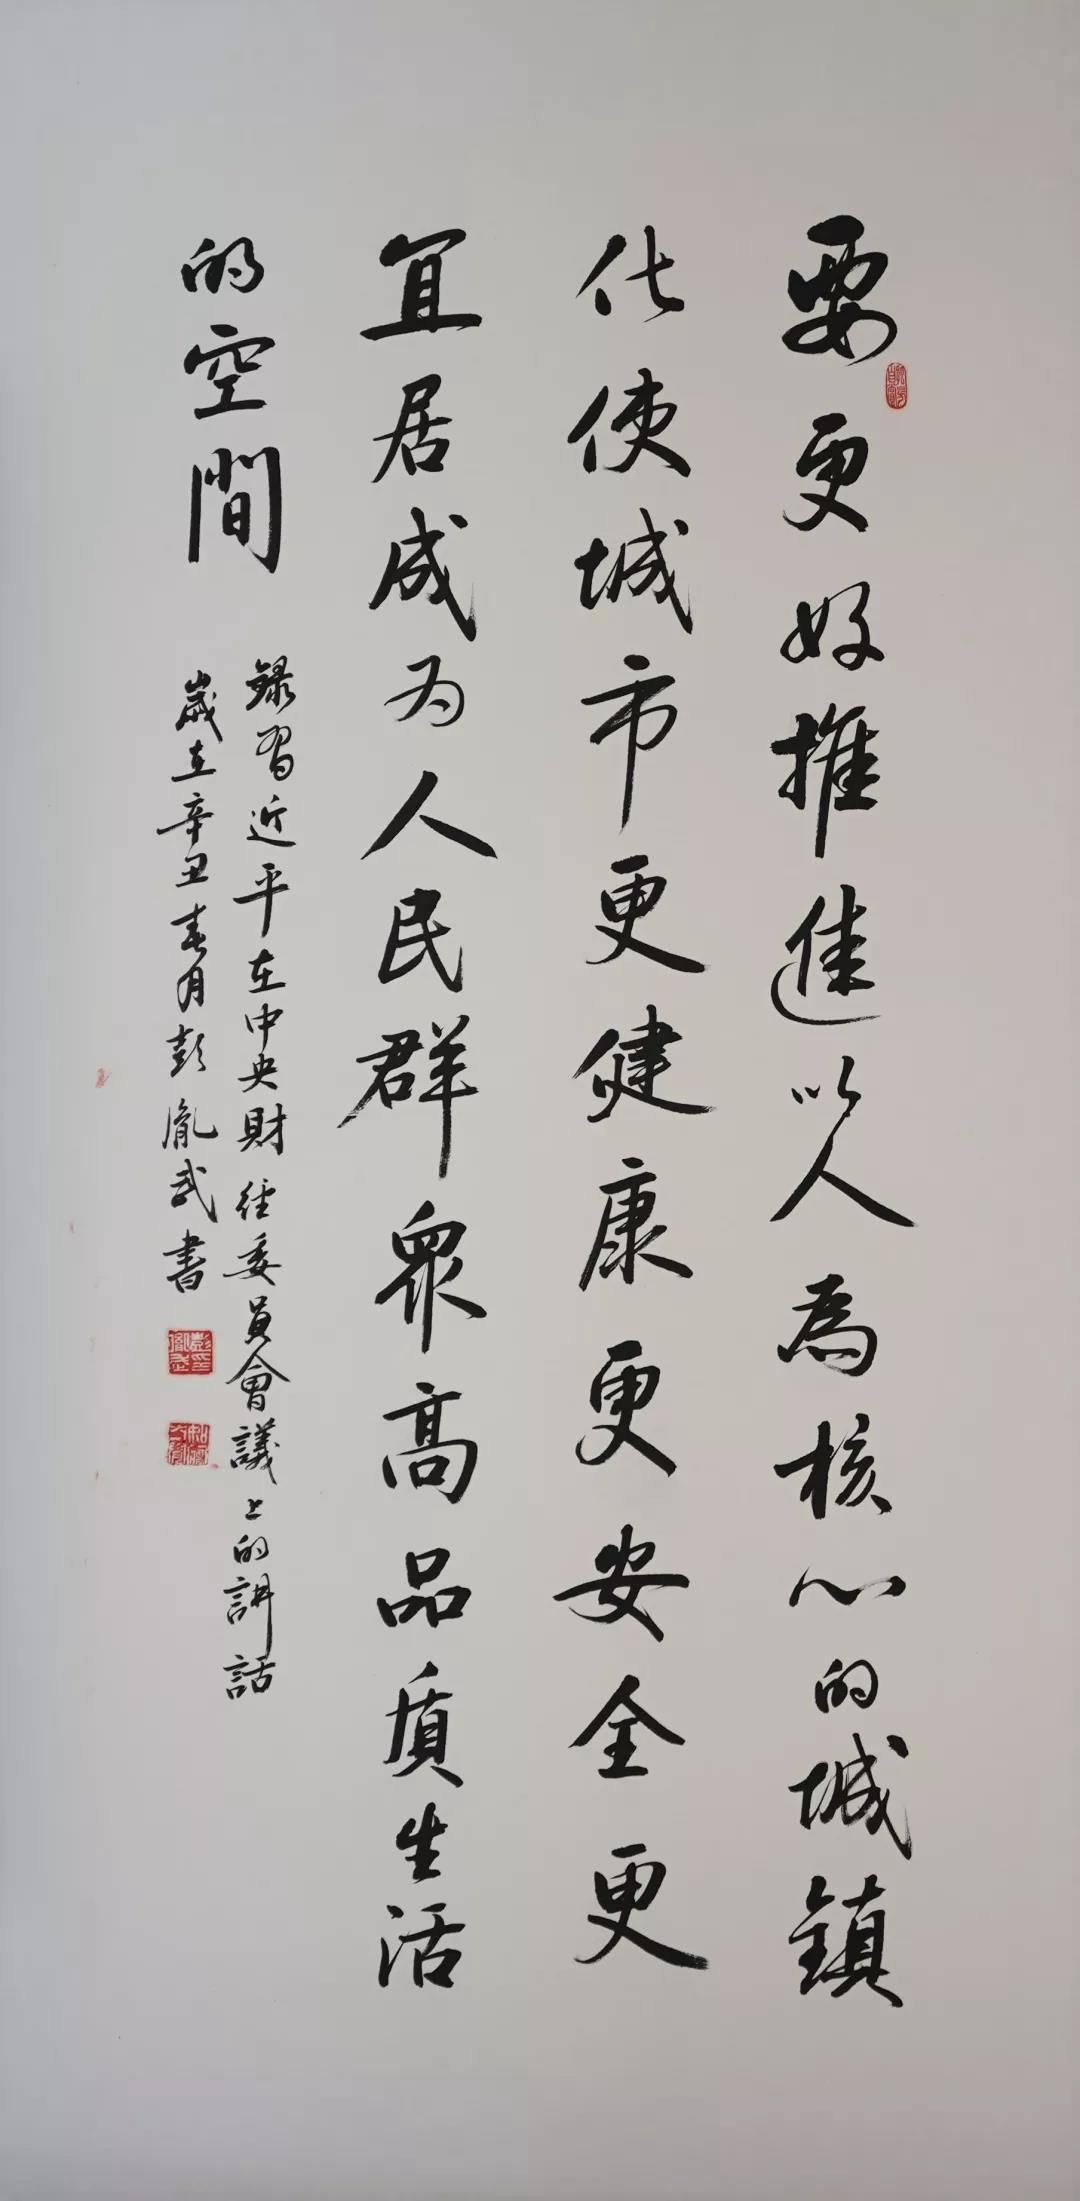 要更好推進以人為核心的城鎮
化使城市更健康更安全更
宜居成为人民群眾高品質生活
的空間
録習近平在中央財经委員會議上的講話
歲在辛丑春月彭胤武書